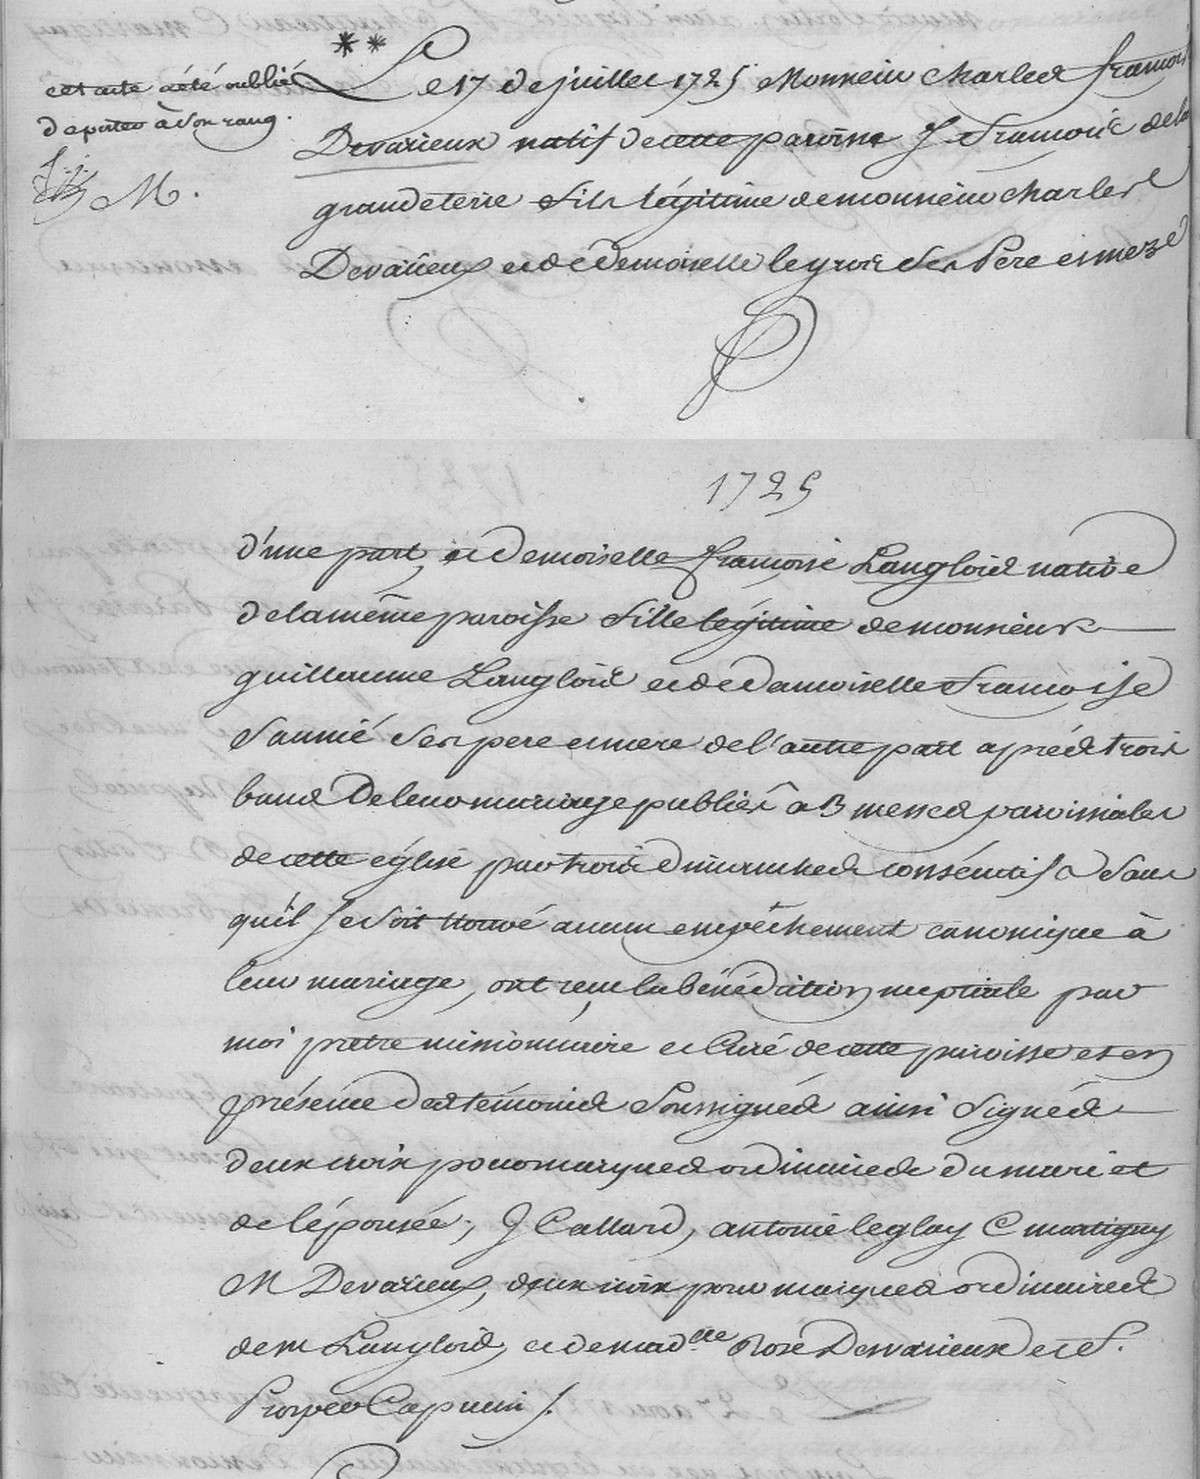 cet acte a été oublié
d'aporter à Son rang.
M.
** Le 17 de juillet 1725 Monsieur Charles françois
Devarieux natif de cette paroisse S. François de la
grandeterre fils légitime de monsieur Charles
Devarieux et de Demoiselle ses Père et mere
1725
d'une part, et Demoiselle françoise Langlois native
de la même paroisse fille légitime de monsieur
guillaume Langlois et de Damoiselle françoise
Saunié ses pere et mere de l'autre part après trois
bans De leur mariage publiés à 3 messes paroissiales
de cette églisé par trois dimanches consécutifs Sans
qu'il se soit trouvé aucun empêchement canonique à
leur mariage, ont reçu la bénédiction nuptiale par
moi pretre missionnaire et Curé de cette paroisse et en
présence Des témoins Soussignés ainsi Signés
deux croix pour marques ordinaires du mari et
de l'épousée, J Callard, antoine leglay C martigny
M Devarieux, deux croix pour marques ordinaires
de m Langlois, et de mad.lle Rose Desvarieux et f.
Prosper Capucin /.